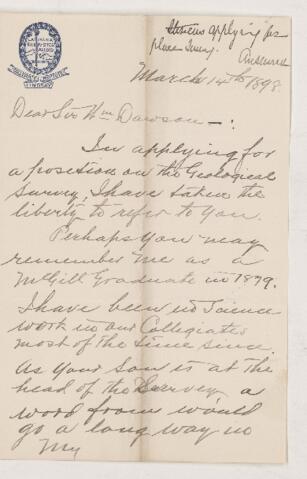 applying for
place Surv.
Answered
COLLEGIATE INSTITUTE
LINDSAY
March 14th 1898.
Dear Sir Wm Dawson —:
In applying for
a position on the Geological
Survey, I have taken the
liberty to refer to you.
Perhaps you may
remember me as a
McGill Graduate in 1879.
I have been in Science
work in our Collegiates
most of the time since.
As your son is at the
head of the Survey a
word from would
go a long way in
my